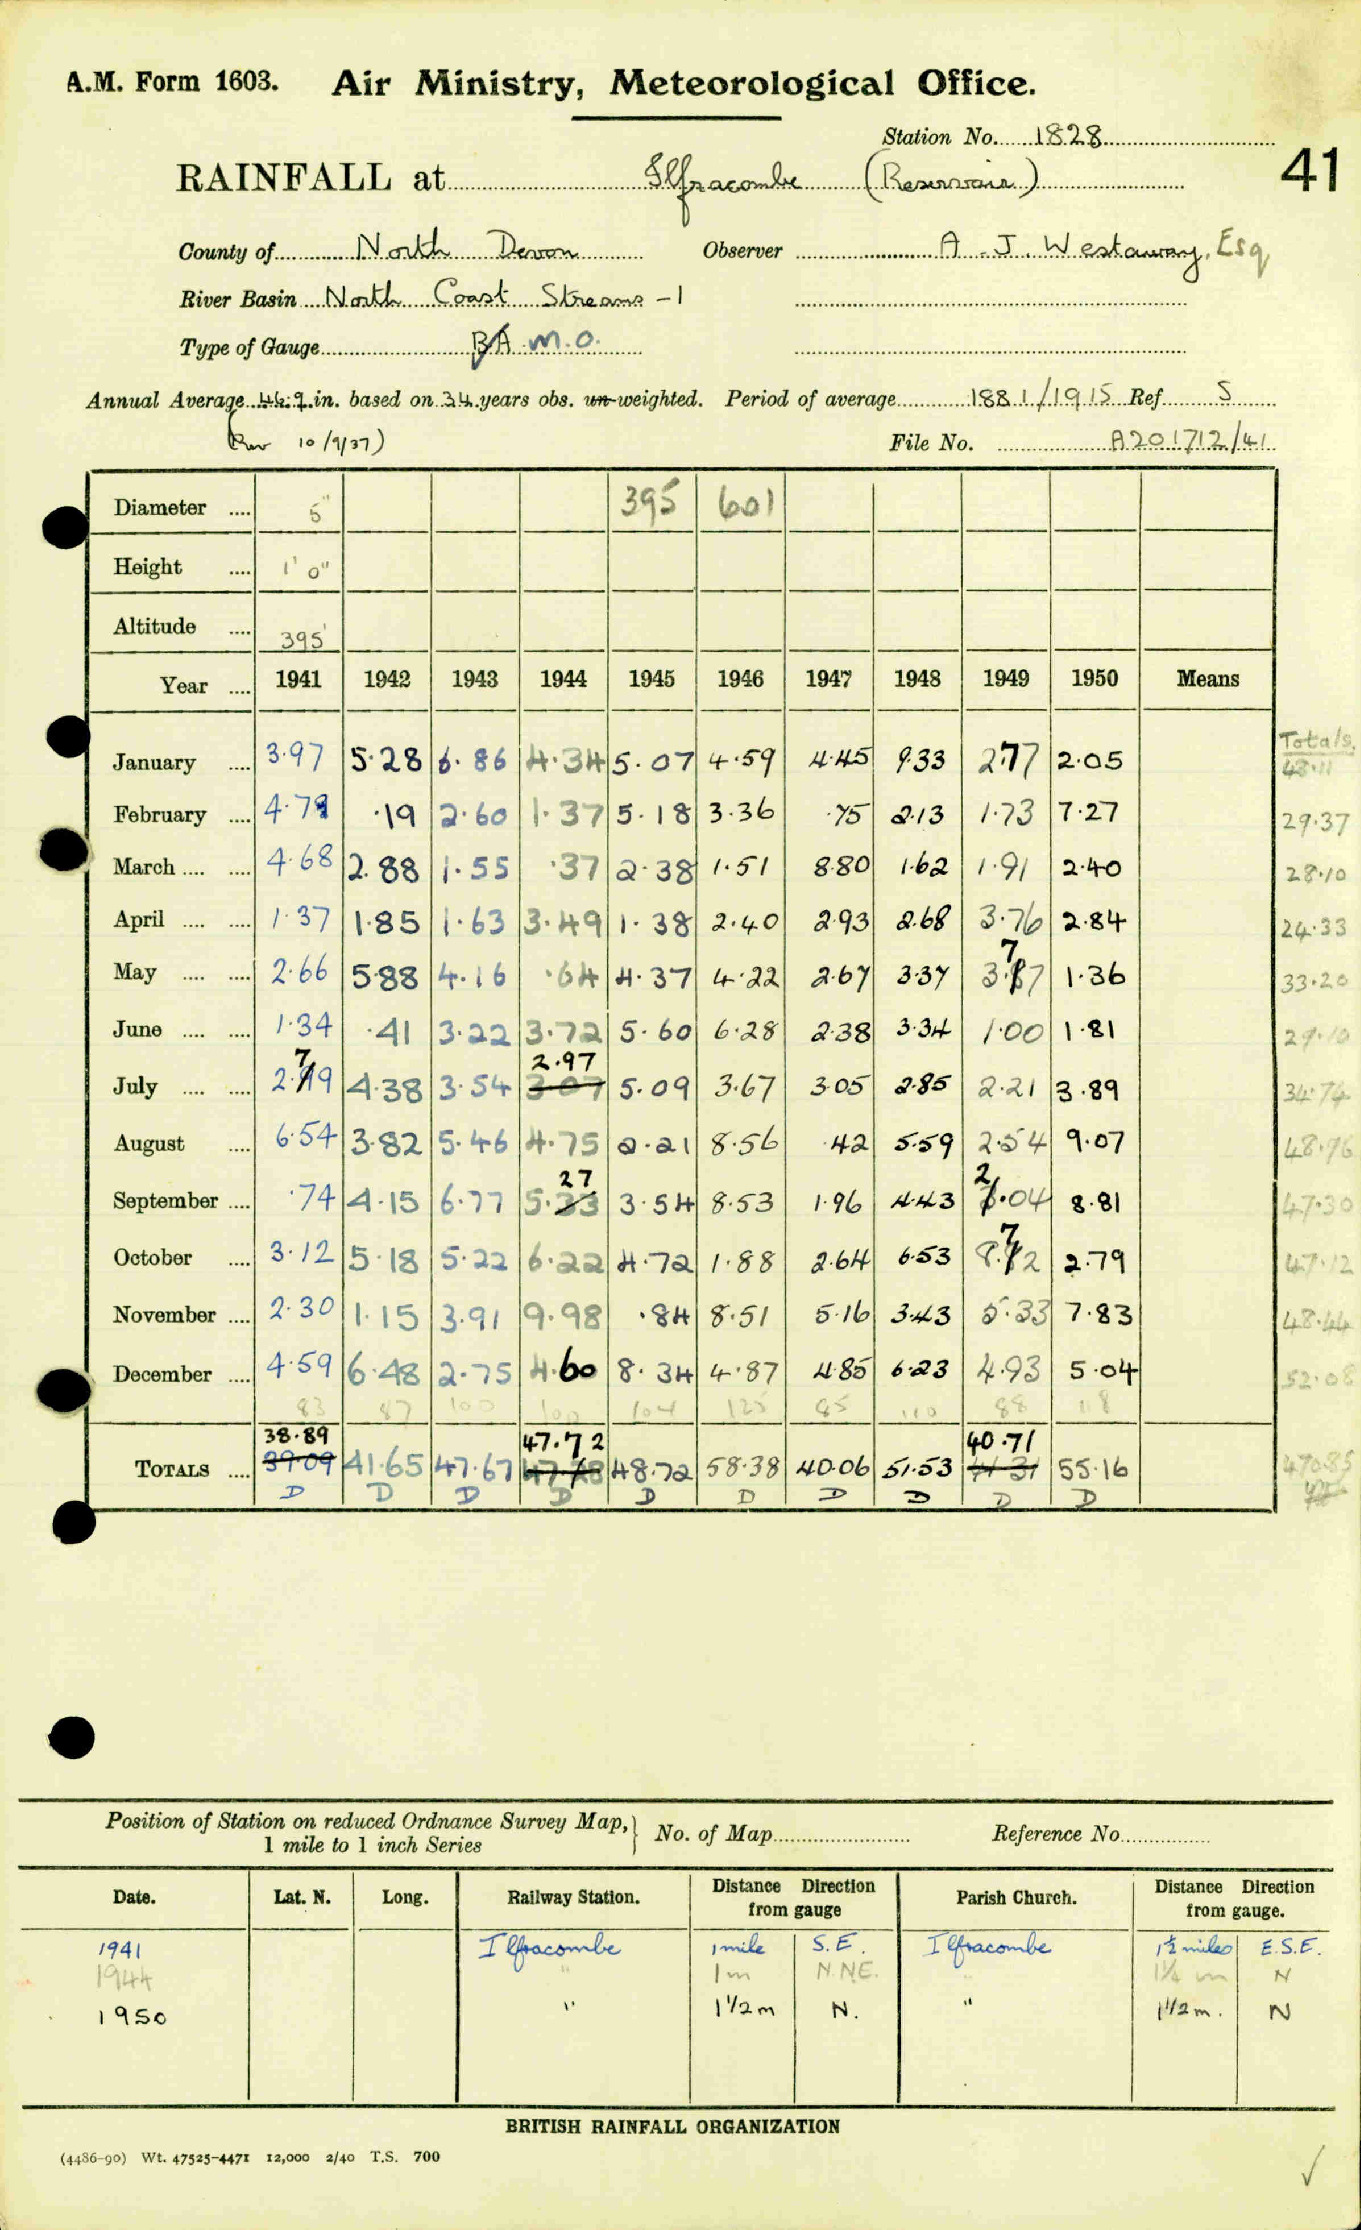 A.M. Form 1603. Air Ministry, Meteorological Office.
Station No. 1828
41
RAINFALL at Ilfracombe (Reservoir)
County of North Devon Observer A. J. Westaway, Esq
River Basin North Coast Streams - 1
Type of Gauge BA M.O.
Annual Average 46.9 in. based on 34 years obs. un-weighted. Period of average 1881/1915 Ref. S
(Rev 10/9/37) File No. A201712/41
Diameter .... 5" 395 601
Height .... 1' 0"
Altitude .... 395'
Year .... 1941 1942 1943 1944 1945 1946 1947 1948 1949 1950 Means
Totals
January .... 3.97 5.28 6.86 4.34 5.07 4.59 4.45 9.33 2.77 2.05 48.11
February .... 4.79 .19 2.60 1.37 5.18 3.36 .75 2.13 1.73 7.27 29.37
March .... .... 4.68 2.88 1.55 .37 2.38 1.51 8.80 1.62 1.91 2.40 28.10
April .... .... 1.37 1.85 1.63 3.49 1.38 2.40 2.93 2.68 3.76 2.84 24.33
7
May .... .... 2.66 5.88 4.16 .64 4.37 4.22 2.67 3.37 3.87 1.36 33.20
June .... .... 1.34 .41 3.22 3.72 5.60 6.28 2.38 3.34 1.00 1.81 29.10
7 2.97
July .... .... 2.99 4.38 3.54 3.07 5.09 3.67 3.05 2.85 2.21 3.89 34.74
August .... 6.54 3.82 5.46 4.75 2.21 8.56 .42 5.59 2.54 9.07 48.96
27 2
September .... .74 4.15 6.77 5.33 3.54 8.53 1.96 4.43 3.04 8.81 47.30
7
October .... 3.12 5.18 5.22 6.22 4.72 1.88 2.64 6.53 8.12 2.79 47.12
November .... 2.30 1.15 3.91 9.98 .84 8.51 5.16 3.43 5.33 7.83 48.44
December .... 4.59 6.48 2.75 4.60 8.34 4.87 4.85 6.23 4.93 5.04 52.08
83 87 100 100 104 125 85 110 88 118
38.89 47.72 40.71
TOTALS .... 39.09 41.65 47.67 48.72 58.38 40.06 51.53 41.31 55.16 470.85
D D D D D D D D D D
Position of Station on reduced Ordnance Survey Map, } No. of Map Reference No
1 mile to 1 inch Series
Date. Lat. N. Long. Railway Station. Distance Direction from gauge Parish Church. Distance Direction from gauge.
1941 Ilfracombe 1 mile S.E. Ilfracombe 1½ miles E.S.E.
1944 " 1m N.NE. " 1¼ m N
1950 " 1½ m N. " 1½ m. N
BRITISH RAINFALL ORGANIZATION
(4486-90) Wt. 47525-4471 12,000 2/40 T.S. 700